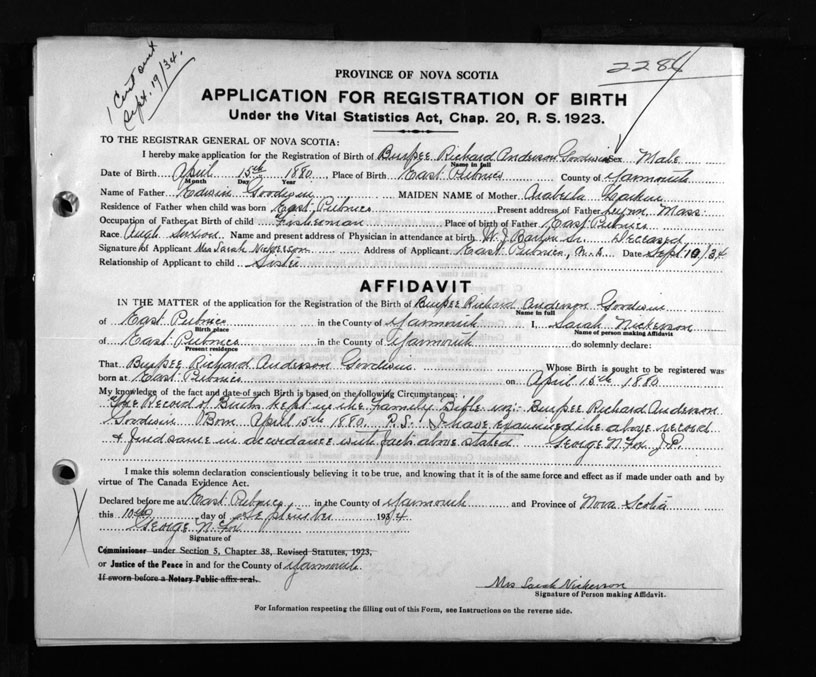 1 Cert out
Sept. 19/34.
2284
PROVINCE OF NOVA SCOTIA
APPLICATION FOR REGISTRATION OF BIRTH
Under the Vital Statistics Act, Chap. 20, R. S. 1923.
TO THE REGISTRAR GENERAL OF NOVA SCOTIA:
I hereby make application for the Registration of Birth of Burpee Richard Anderson Goodwin Sex Male
Name in full
Date of Birth April 15th 1880 Place of Birth East Pubnico County of Yarmouth
Month Day Year
Name of Father Edwin Goodwin MAIDEN NAME of Mother Arabella Larkin
Residence of Father when child was born East Pubnico Present address of Father Lynn, Mass.
Occupation of Father at Birth of child Fisherman Place of birth of Father East Pubnico
Race Anglo Saxon Name and present address of Physician in attendance at birth H. J. Barton Sr. Deceased
Signature of Applicant Mrs Sarah Nickerson Address of Applicant East Pubnico, N. S. Date Sept 10/34
Relationship of Applicant to child Sister
AFFIDAVIT
IN THE MATTER of the application for the Registration of the Birth of Burpee Richard Anderson Goodwin
Name in full
of East Pubnico in the County of Yarmouth I, Sarah Nickerson
Birth place Name of person making Affidavit
of East Pubnico in the County of Yarmouth do solemnly declare:
Present residence
That Burpee Richard Anderson Goodwin Whose Birth is sought to be registered was
born at East Pubnico on April 15th 1880
My knowledge of the fact and date of such Birth is based on the following Circumstances:
The Record of Birth kept in the Family Bible viz: Burpee Richard Anderson
Goodwin Born April 15th 1880 P.S. I have examined the above record
& find same in accordance with facts above stated George N. Fox J.P.
I make this solemn declaration conscientiously believing it to be true, and knowing that it is of the same force and effect as if made under oath and by
virtue of The Canada Evidence Act.
Declared before me at East Pubnico in the County of Yarmouth and Province of Nova Scotia
this 10th day of September 1934
George N. Fox
Signature of
Commissioner under Section 5, Chapter 38, Revised Statutes, 1923,
or Justice of the Peace in and for the County of Yarmouth
If sworn before a Notary Public affix seal.
Mrs Sarah Nickerson
Signature of Person making Affidavit.
For Information respecting the filling out of this Form, see Instructions on the reverse side.